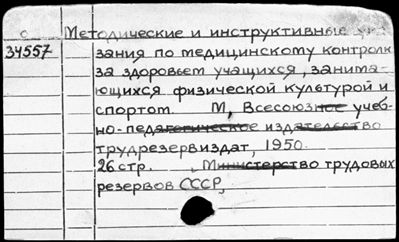 с Методические и инструктивные ука-
34557 зания по медицинскому контролю
за здоровьем учащихся, занима-
ющихся физической культурой и
спортом М, Всесоюзное учеб-
но-педагогическое издательство
трудрезервиздат, 1950.
26 стр. Министерство трудовых
резервов СССР,